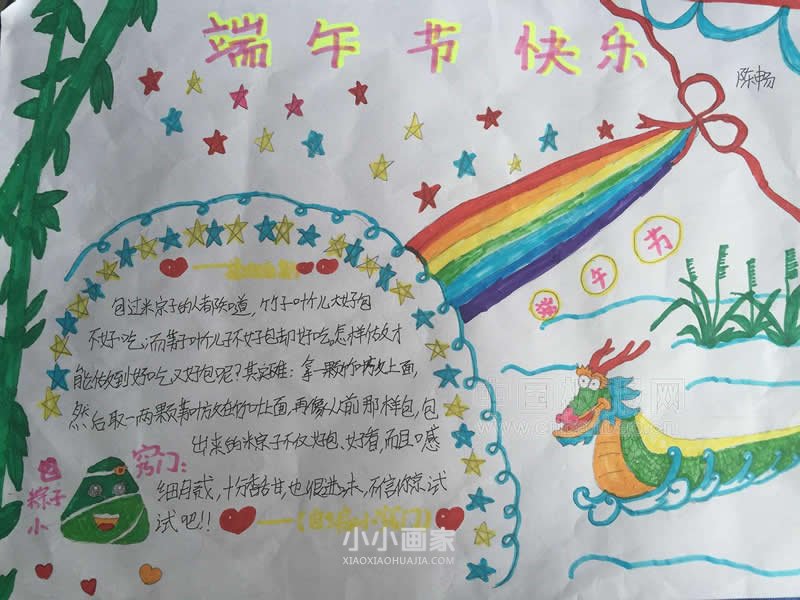 端午节快乐
陈畅
端午节
包过米宗子的人都知道,竹子叶儿大好包
不好吃,而箬子叶儿不好包却好吃,怎样做才
能做到好吃又好包呢?其实
然后取一两颗箬叶放在竹叶上面,再像从前那样包,包
出来的米宗子不仅好包、好看,而且口感
细腻,十分香甘,也很,不信你就试
试吧!!
包
粽子
小
窍门:
小小画家
XIAOXIAOHUAJIA.COM